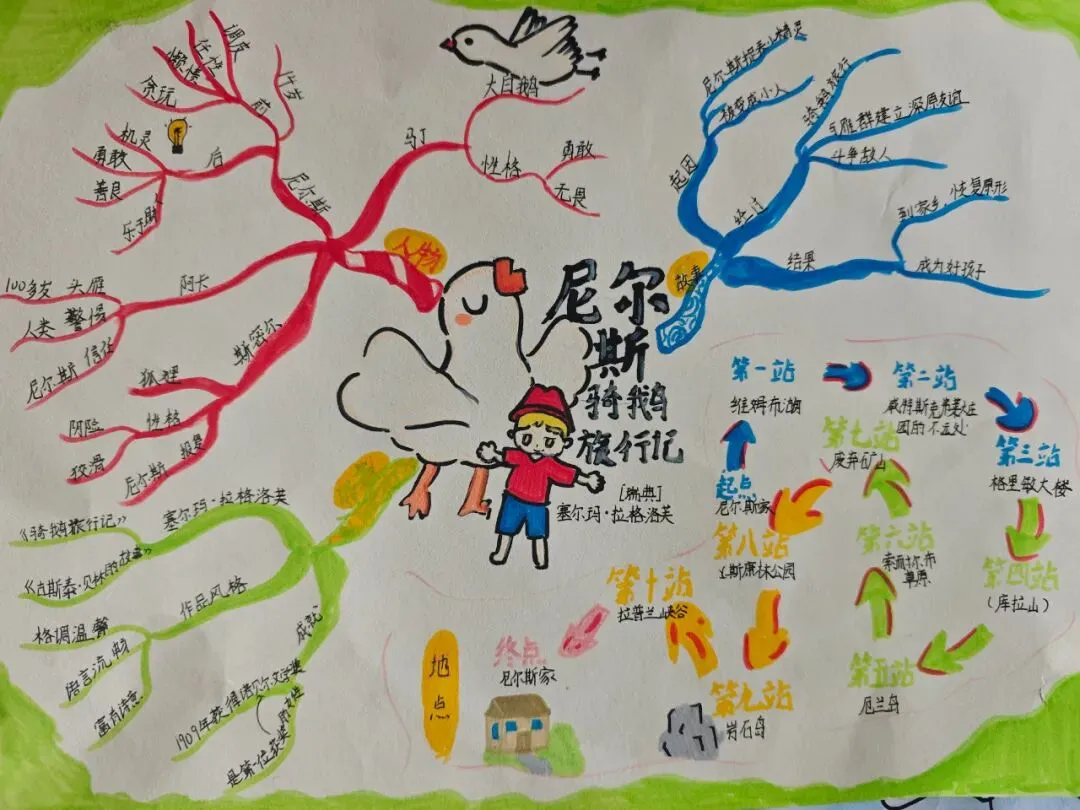 尼尔斯
骑鹅
旅行记
[瑞典]
塞尔玛·拉格洛芙
人物
尼尔斯
前
贪玩
懒惰
任性
调皮
后
机灵
勇敢
善良
马丁
大白鹅
性格
勇敢
无畏
阿卡
100多岁 头雁
人类 警惕
尼尔斯 信任
斯密尔
狐狸
性格
阴险
狡滑
尼尔斯 报复
故事
起因
尼尔斯捉弄小精灵
被变成小人
经过
骑鹅旅行
与雁群建立深厚友谊
斗争敌人
结果
到家乡,恢复原形
成为好孩子
塞尔玛·拉格洛芙
《骑鹅旅行记》
作品风格
格调温馨
语言流畅
富有诗意
成就
1909年获得诺贝尔文学奖
是第一位获奖的女性
地点
起点
尼尔斯家
第一站
维姆布湖
第二站
第三站
格里敏大楼
第四站
(库拉山)
第五站
厄兰岛
第六站
草原
第七站
废弃矿山
第八站
斯康林公园
第九站
岩石岛
第十站
拉普兰峡谷
终点
尼尔斯家